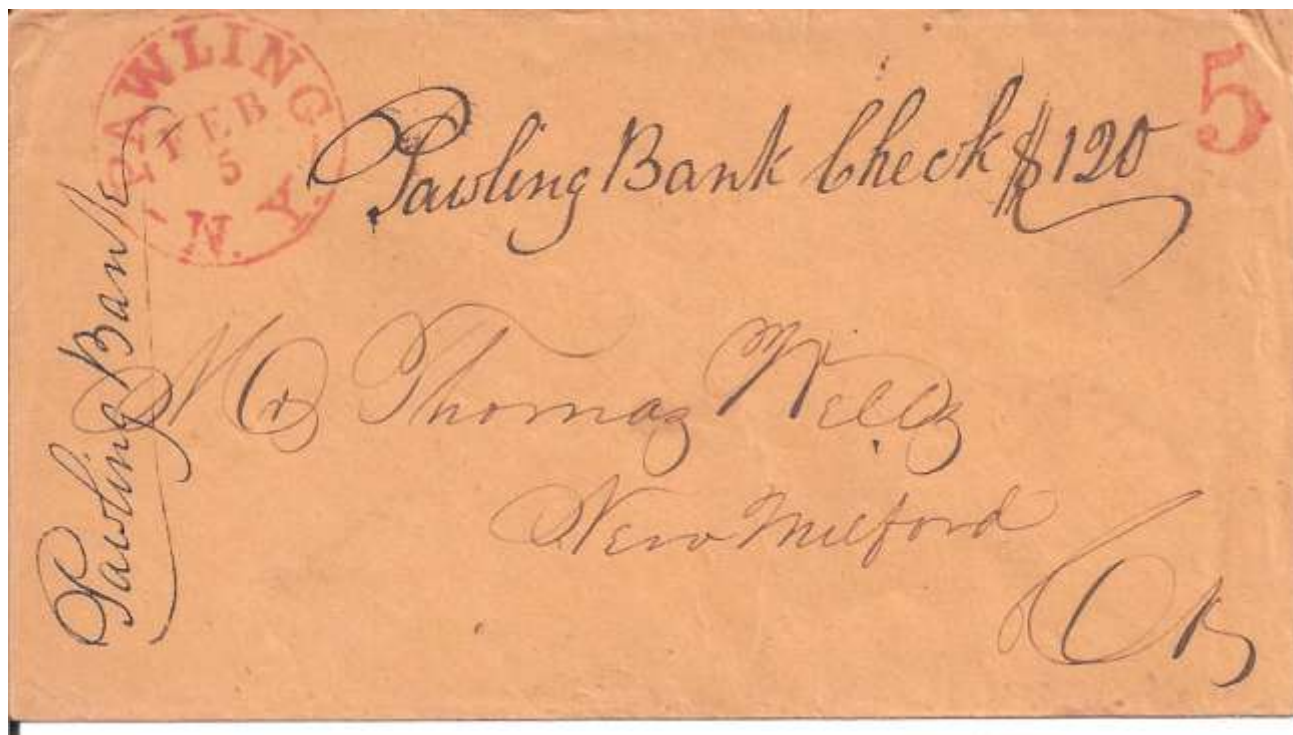 PAWLING
FEB
5
N.Y.
5
Pawling Bank Check $120
Pawling Bank
Mr Thomas Wells
New Milford
Ct